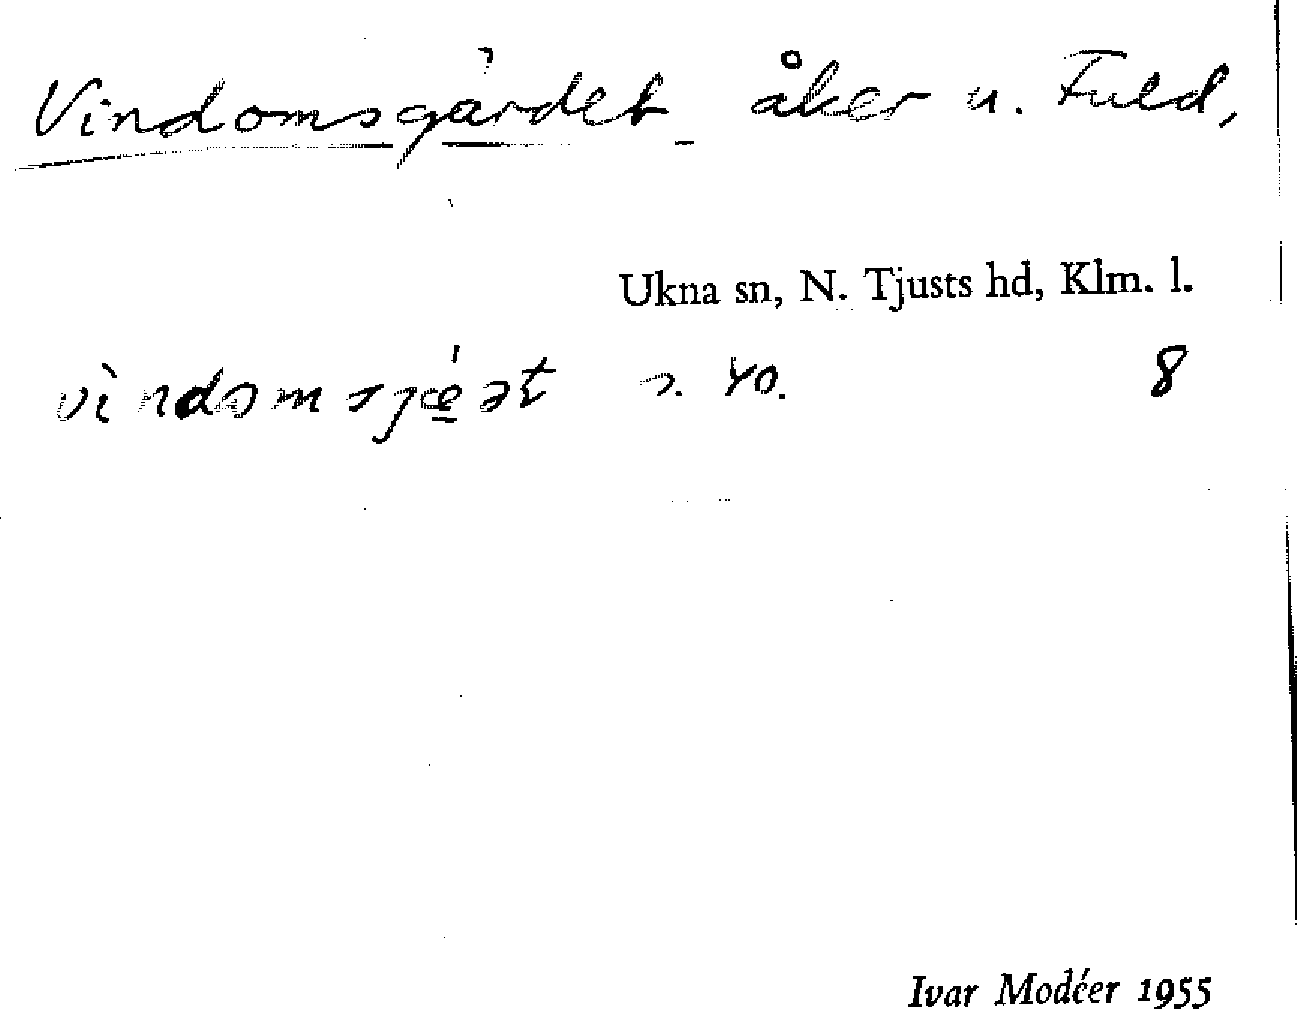 Vindomsgärdet åker u. Fuld,
Ukna sn, N. Tjusts hd, Klm. l.
vìndomsjǽ̲ət s. 40. 8
Ivar Modéer 1955